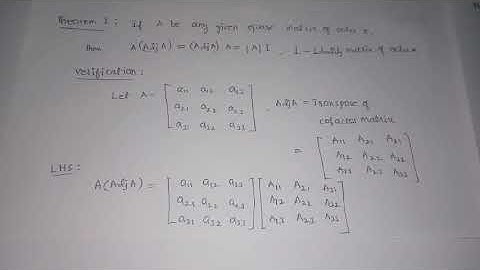 Theorem 1 : If A be any given square matrix of order n.
then A(AdjA) = (AdjA) A = |A| I , I - Identity matrix of order n
Verification :
Let A = [ a11 a12 a13
a21 a22 a23
a31 a32 a33 ] , AdjA = Transpose of cofactor matrix
= [ A11 A21 A31
A12 A22 A32
A13 A23 A33 ]
LHS :
A(AdjA) = [ a11 a12 a13
a21 a22 a23
a31 a32 a33 ] [ A11 A21 A31
A12 A22 A32
A13 A23 A33 ]